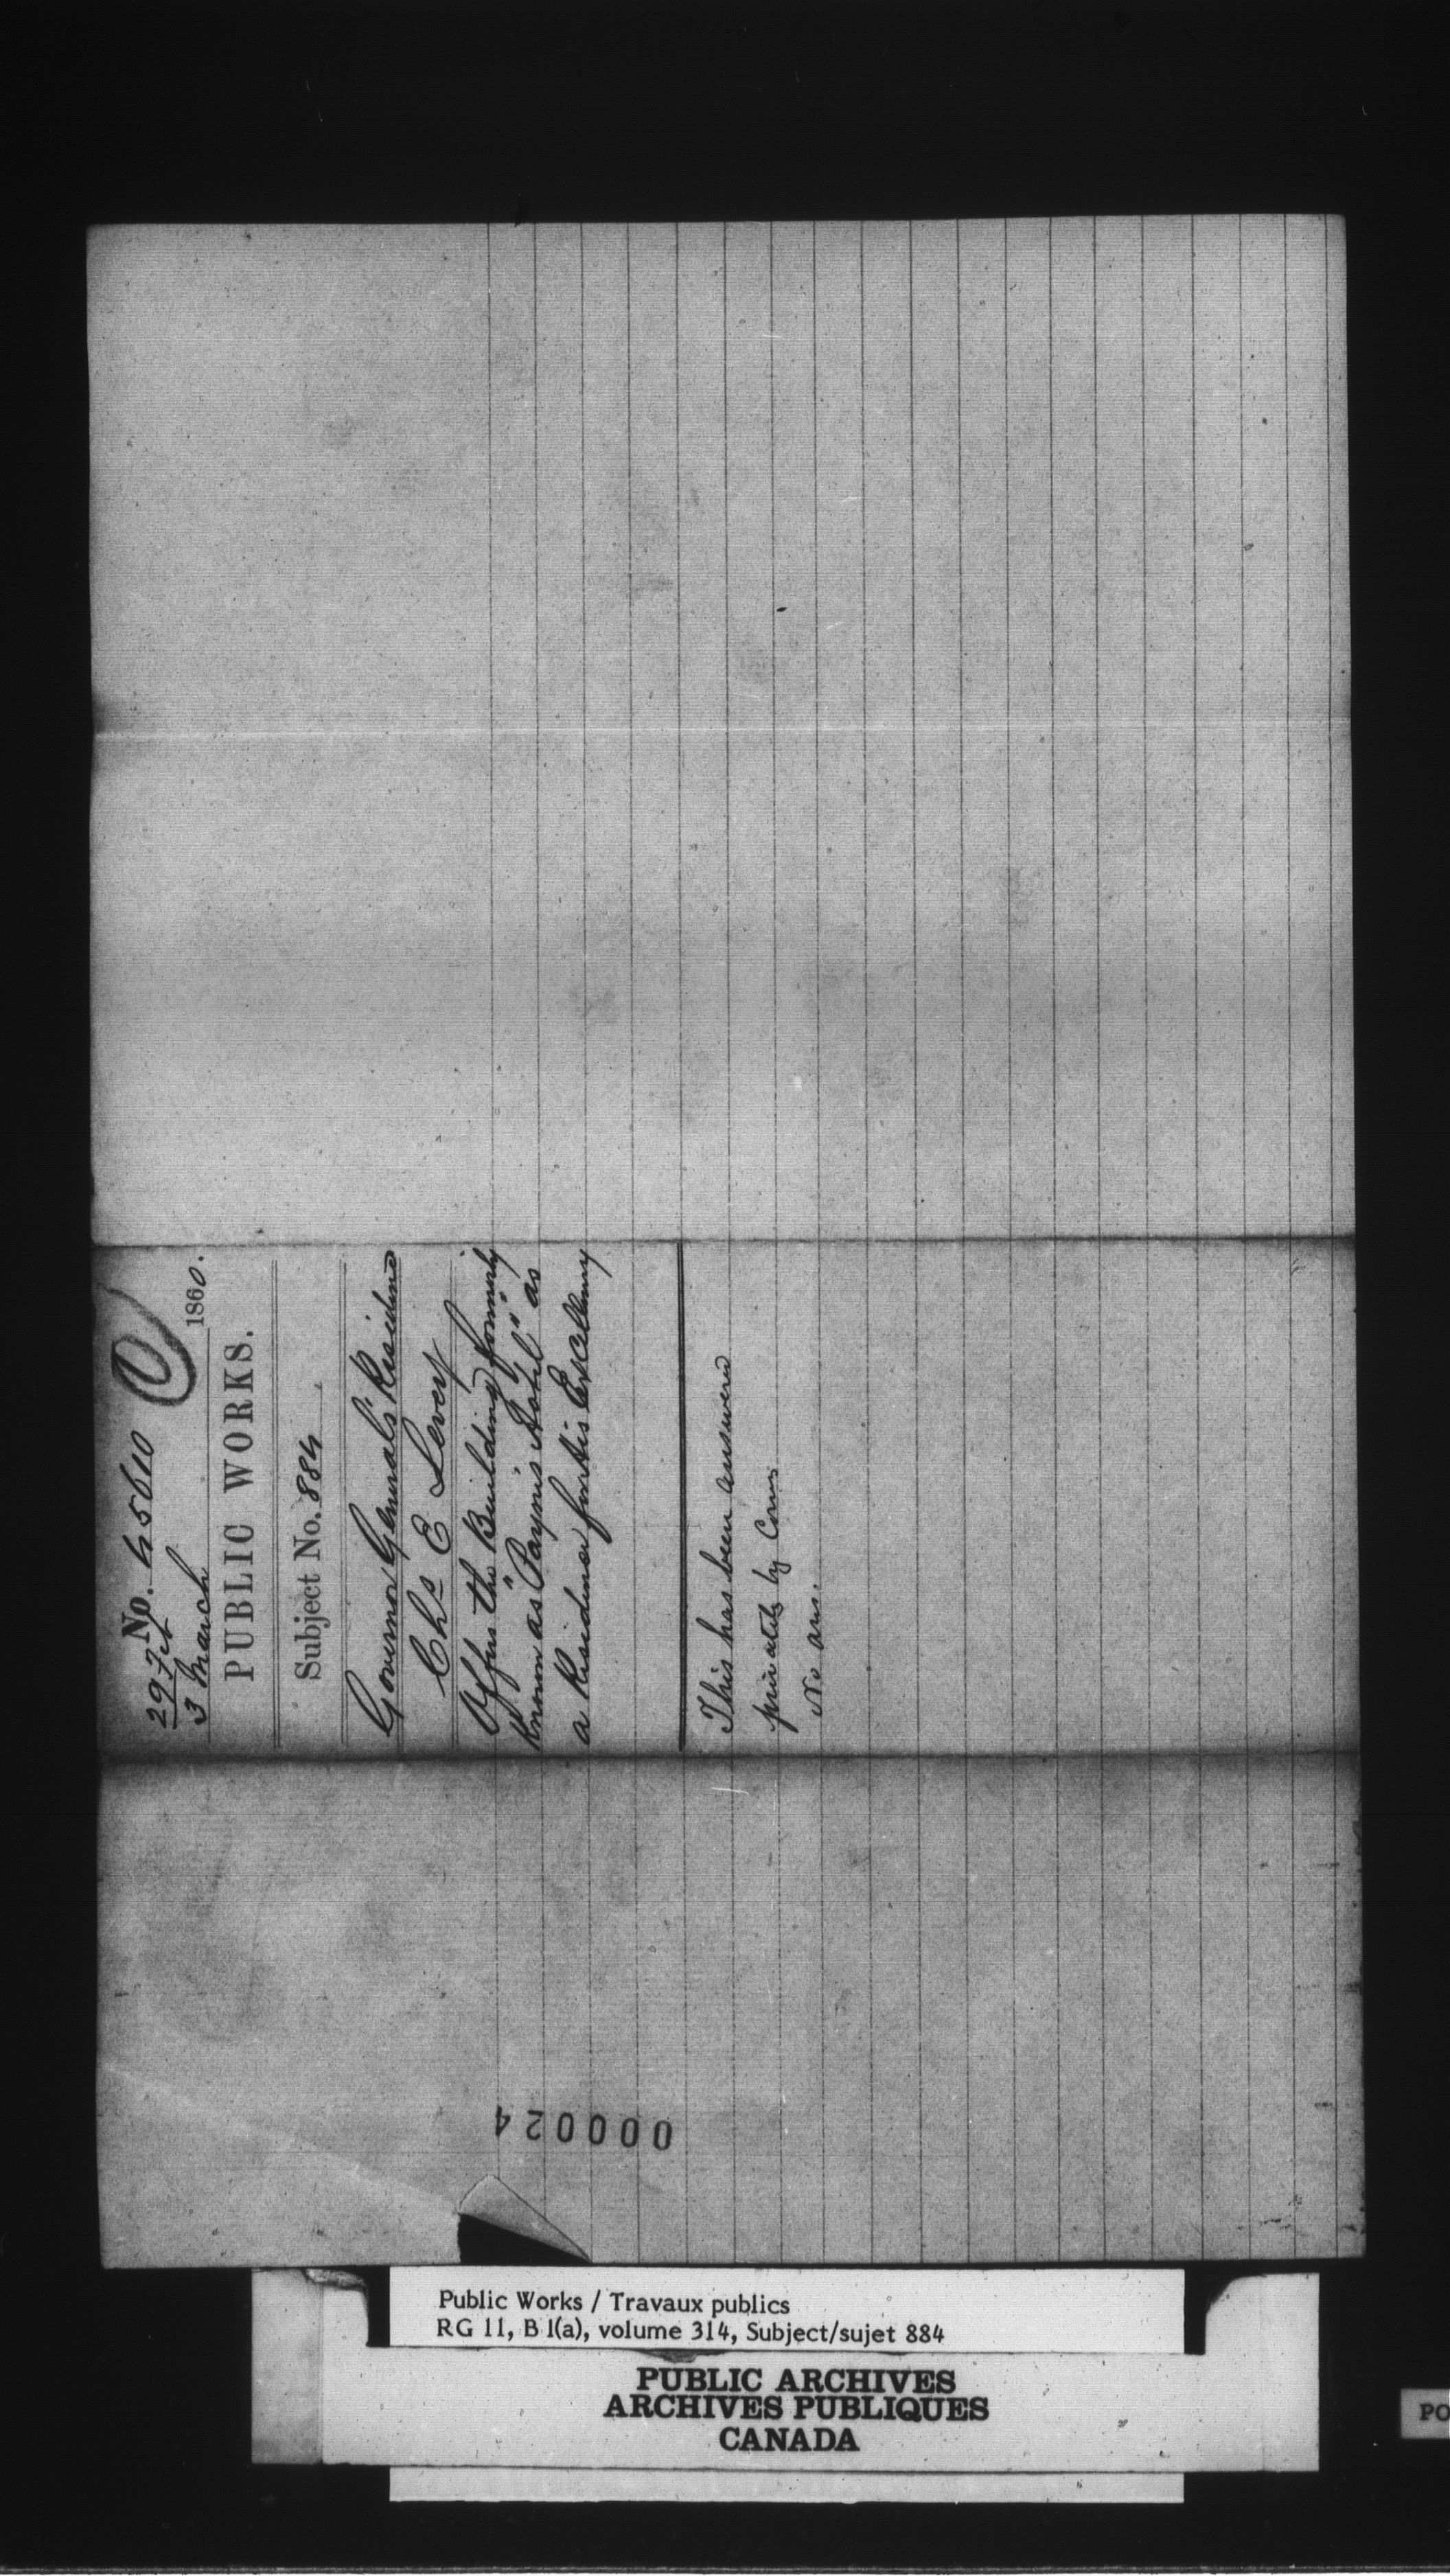 No. 45610
29 Feb
3 March 1860.
PUBLIC WORKS.
Subject No. 884
Governor General's Residence
Chs E Levey
Offers the Building formerly
known as "Payne's Hotel" as
a Residence for His Excellency
This has been answered
privately by Comr
No ans.
000024
Public Works / Travaux publics
RG 11, B 1(a), volume 314, Subject/sujet 884
PUBLIC ARCHIVES
ARCHIVES PUBLIQUES
CANADA
PO